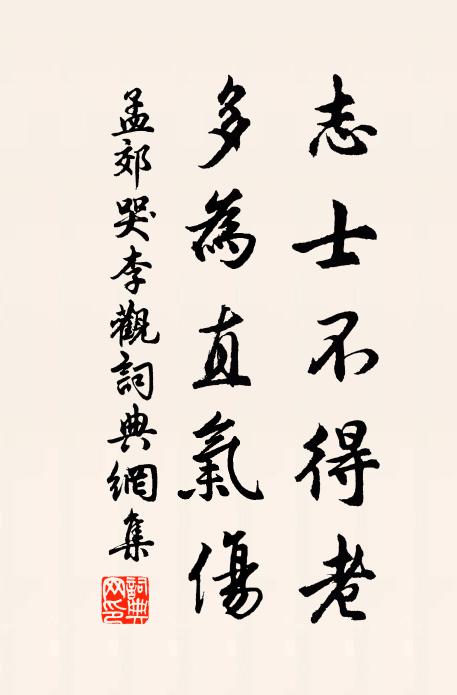 志士不得老
多為直氣傷
孟郊哭李觀詞典網集
詞典網印